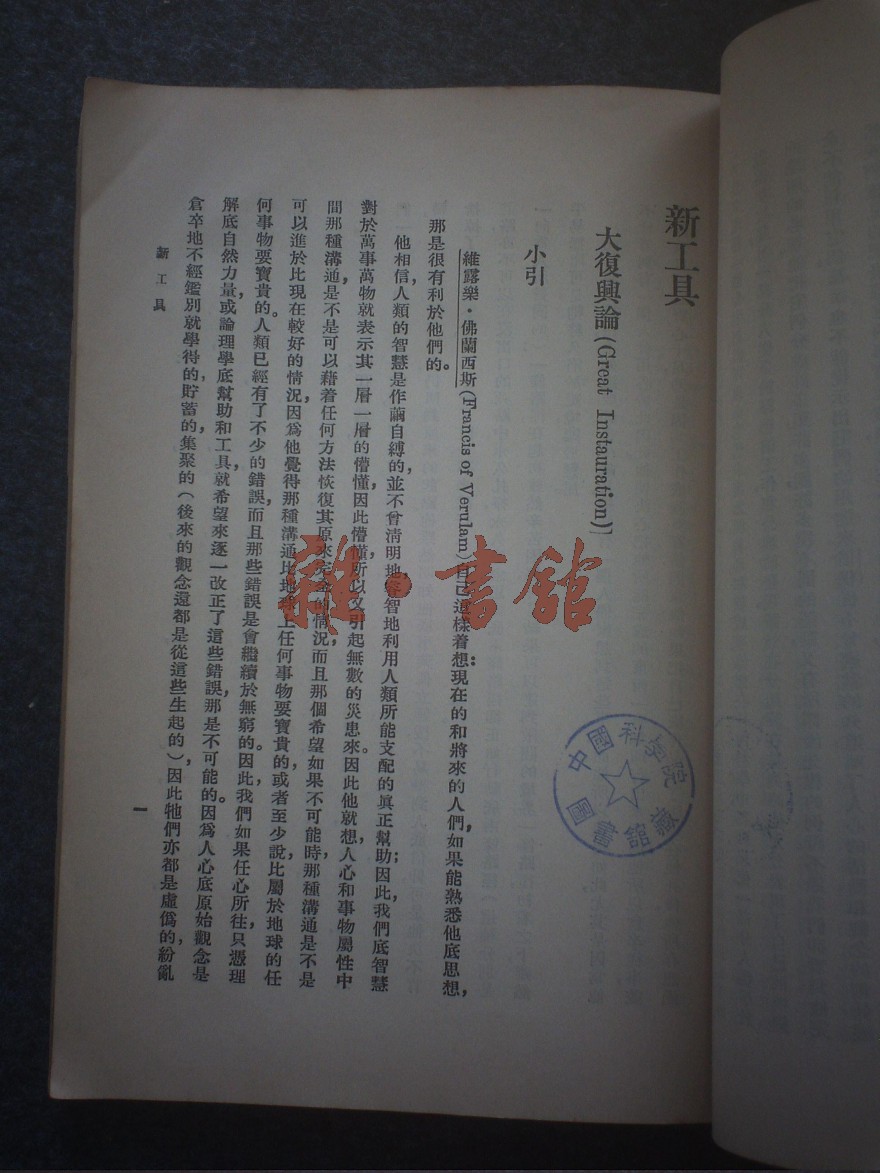 新工具
大復興論(Great Instauration)]
小引
維露樂·佛蘭西斯(Francis of Verulam)自己這樣着想:現在的和將來的人們,如果能熟悉他底思想,
那是很有利於他們的。
他相信人類的智慧是作繭自縛的,並不曾清明地智地利用人類所能支配的眞正幫助;因此,我們底智慧
對於萬事萬物就表示其一層一層的懵懂,因此懵懂,所以又引起無數的災患來。因此他就想,人心和事物屬性中
間那種溝通,是不是可以藉着任何方法恢復其原來完全的情況,而且那個希望如果不可能時,那種溝通是不是
可以進於比現在較好的情況,因爲他覺得那種溝通比地球上任何事物要寶貴的,或者至少說比屬於地球的任
何事物要寶貴的。人類已經有了不少的錯誤,而且那些錯誤是會繼續於無窮的。因此,我們如果任心所往,只憑理
解底自然力量或論理學底幫助和工具,就希望來逐一改正了這些錯誤,那是不可能的。因爲人心底原始觀念是
倉卒地不經鑑別就學得的,貯蓄的,集聚的(後來的觀念還都是從這些生起的),因此牠們亦都是虛僞的,紛亂
新工具
一
雜·書館
中國科學院
圖書館藏